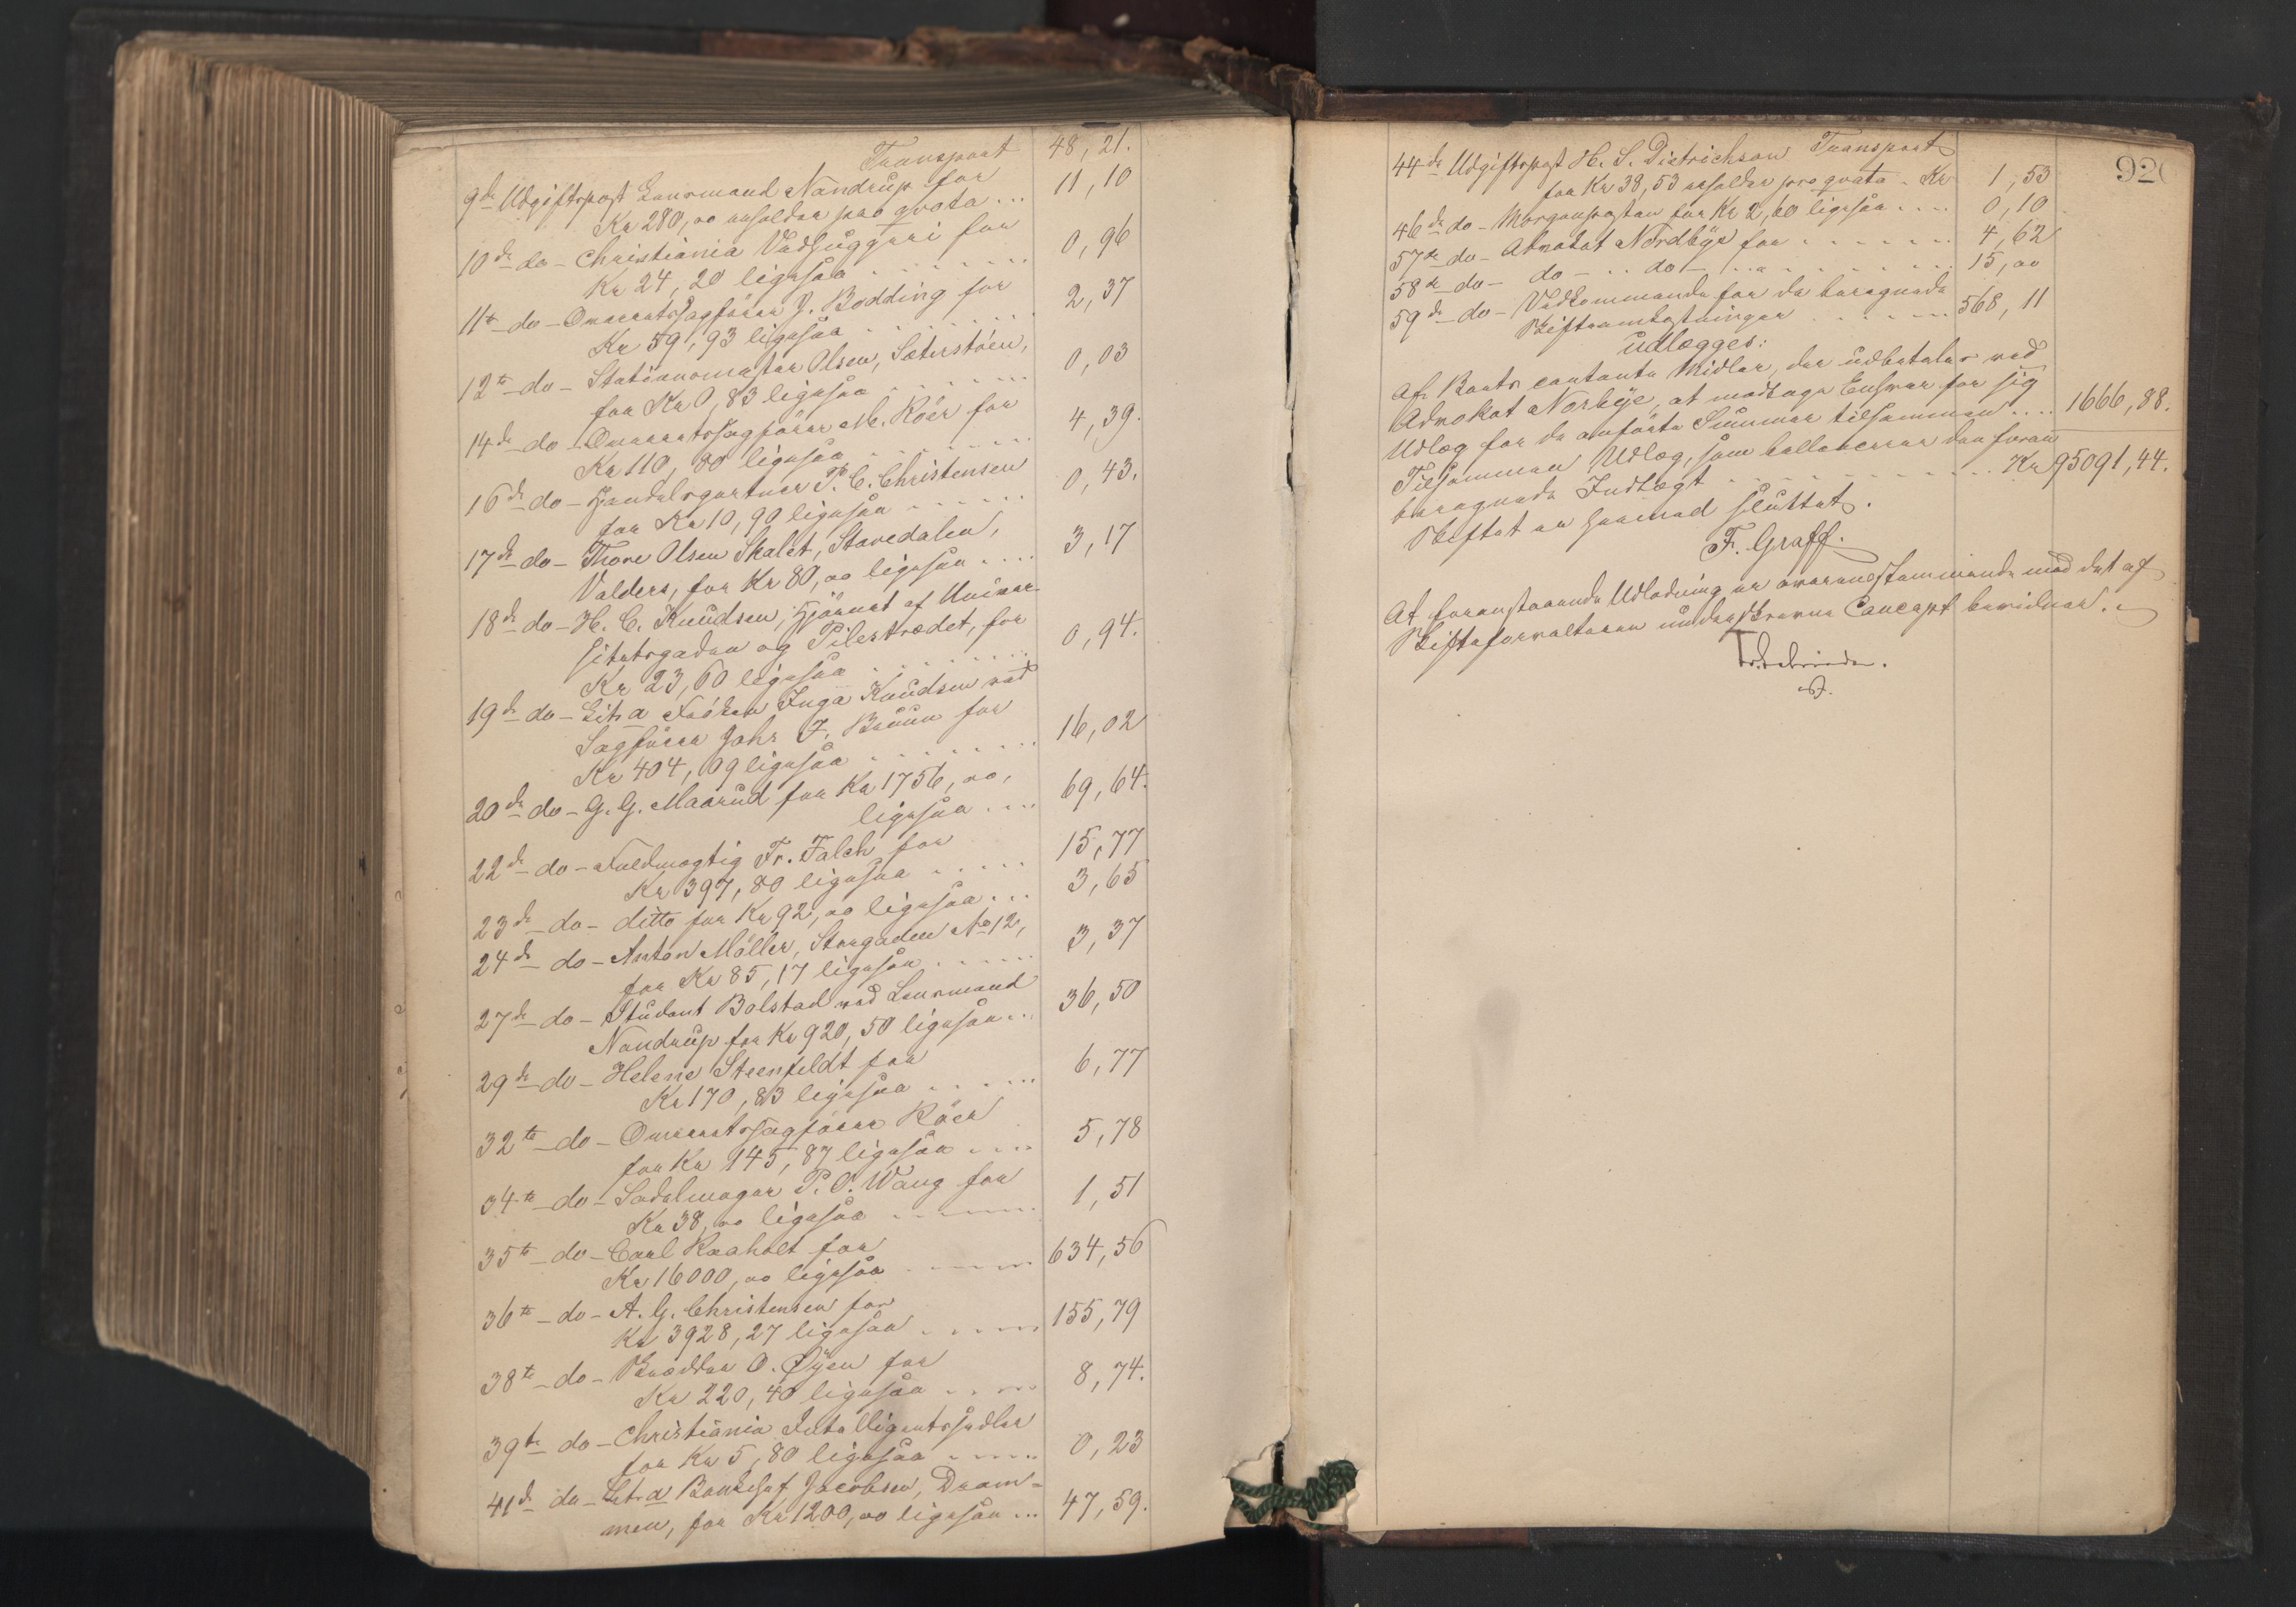 Transport 48,21.
9de Udgiftspost Lensmand Nandrup for
Kr 280,00 erholder pro qvota ... 11,10
10de do - Christiania Vedhuggeri for
Kr 24,20 ligesaa 0,96
11te do - Overretssagfører J. Bodding for
Kr 59,93 ligesaa 2,37
12te do - Stationsmester Olsen, Sæterstøen,
for Kr 0,83 ligesaa 0,03
14de do - Overretssagfører M. Röer for
Kr 110,80 ligesaa 4,39.
16de do - Handelsgartner P. C. Christensen
for Kr 10,90 ligesaa 0,43.
17de do - Thore Olsen Skalet, Stavedalen,
Valders, for Kr 80,00 ligesaa .... 3,17
18de do - H. C. Knudsen, Hjørnet af Univer-
sitetsgaden og Pilestrædet, for
Kr 23,60 ligesaa 0,94.
19de do - Litr a Frøken Inga Knudsen ved
Sagfører Johs F. Bruun for
Kr 404,09 ligesaa 16,02
20de do - G. G. Maarud for Kr 1756,00,
ligesaa .... 69,64.
22de do - Fuldmægtig Fr. Falch for
Kr 397,80 ligesaa 15,77
23de do - ditto for Kr 92,00 ligesaa ... 3,65
24de do - Anton Möller, Storgaden No 12,
for Kr 85,17 ligesaa 3,37
27de do - Student Bolstad ved Lensmand
Nandrup for Kr 920,50 ligesaa ... 36,50
29de do - Helene Steenfeldt for
Kr 170,83 ligesaa 6,77
32te do - Overretssagfører Röer
for Kr 145,87 ligesaa .... 5,78
34te do - Sadelmager P. O. Wang for
Kr 38,00 ligesaa 1,51
35te do - Carl Raaholt for
Kr 16000,00 ligesaa 634,56
36te do - A. G. Christensen for
Kr 3928,27 ligesaa 155,79
38te do - O. Öyen for
Kr 220,40 ligesaa 8,74.
39te do - Christiania Intelligentssedler
for Kr 5,80 ligesaa 0,23
41de do - Litr a Jacobsen, Dram-
men, for Kr 1200,00 ligesaa ... 47,59.
920
Transport
44de Udgiftspost H. S. Dietrichson
for Kr 38,53 erholder pro qvota - Kr 1,53
46de do - Morgenposten for Kr 2,60 ligesaa .... 0,10
57de do - Advokat Nordbye for 4,62
58de do - do - .. do - 15,00
59de do - Vedkommende for de beregnede
Skifteomkostninger 568,11
Udlægges:
Af Boets contante Midler, der udbetales ved
Advokat Norbye, at modtage Enhver for sig
Udlæg for de anførte Summer tilsammen .... 1666,88.
Tilsammen Udlæg, som ballancerer den foran
beregnede Indtægt Kr 95091,44.
Skiftet er hermed sluttet.
F. Graff.
At foranstaaende Udlodning er overensstemmende med det af
Skifteforvalteren underskrevne Concept bevidner.